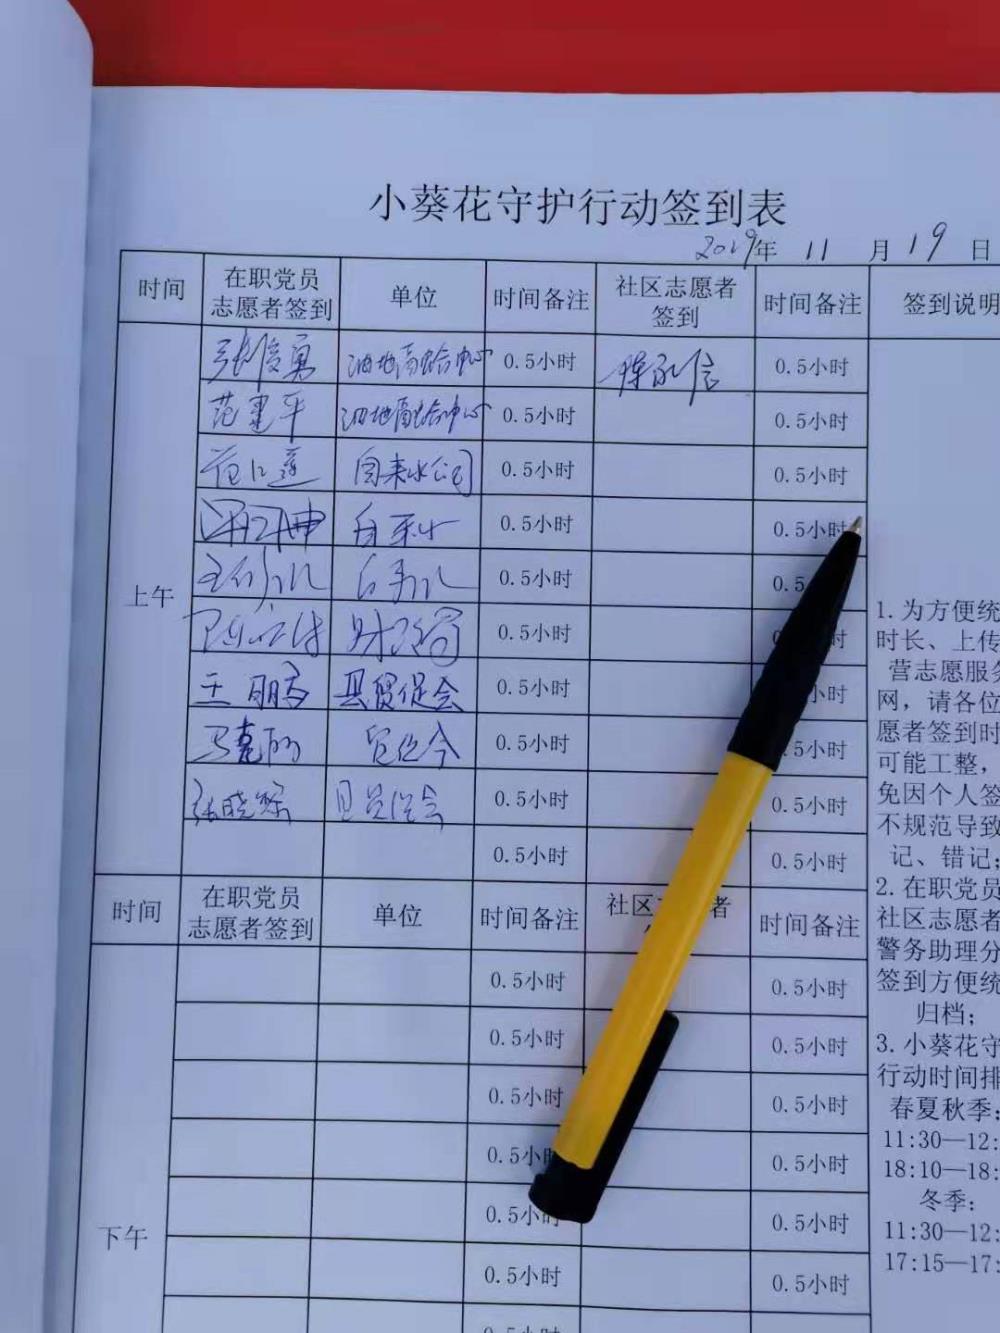 小葵花守护行动签到表
2019年 11 月 19 日
时间 在职党员志愿者签到 单位 时间备注 社区志愿者签到 时间备注 签到说明
上午
张俊勇 0.5小时 0.5小时
范建平 0.5小时 0.5小时
自来水公司 0.5小时 0.5小时
0.5小时 0.5小时
0.5小时 0.5
0.5小时 时
王丽 县贸促会 0.5小时 小时
马克 0.5小时 5小时
张晓 0.5小时 0.5小时
0.5小时 0.5小时
时间 在职党员志愿者签到 单位 时间备注 社区 者 时间备注
下午
0.5小时 0.5小时
0.5小时 0.5小时
0.5小时 0.5小时
0.5小时 0.5小时
0.5小时 0.5小时
0.5小时 0.5小时
1.为方便统
时长、上传
营志愿服务
网，请各位
愿者签到时
可能工整，
免因个人签
不规范导致
记、错记；
2.在职党员
社区志愿者
警务助理分
签到方便统
归档；
3.小葵花守
行动时间排
春夏秋季：
11:30—12:
18:10—18:
冬季：
11:30—12:
17:15—17: